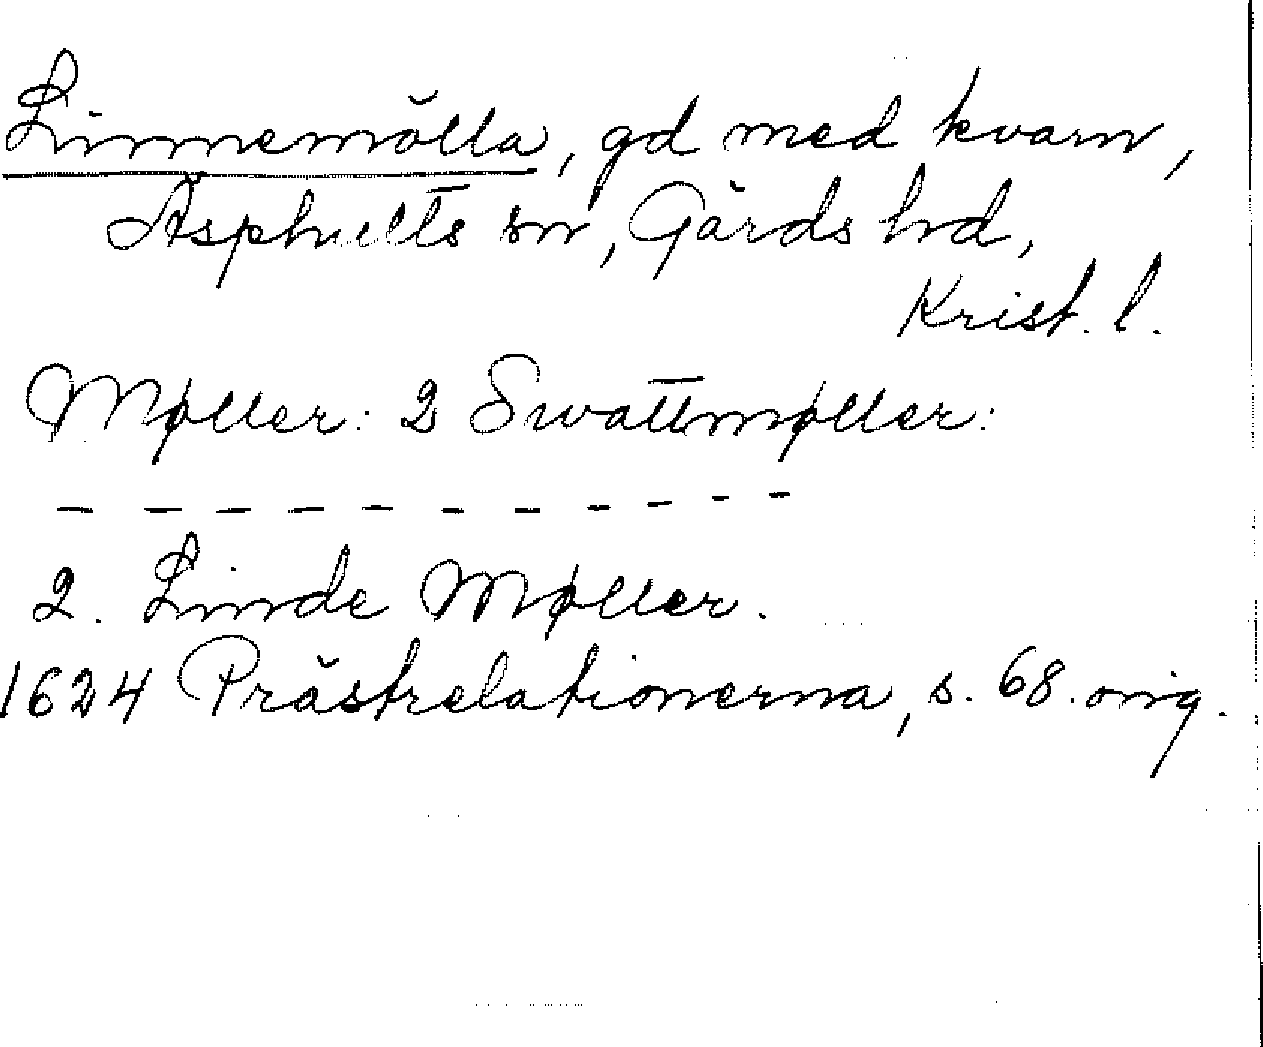 Linnemölla, gd med kvarn,
Äsphults sn, Gärds hd,
Krist. l.
Møller: 2 Swattmøller:
— — — — — — — — — — —
2. Linde Møller.
1624 Prästrelationerna, s. 68. orig.